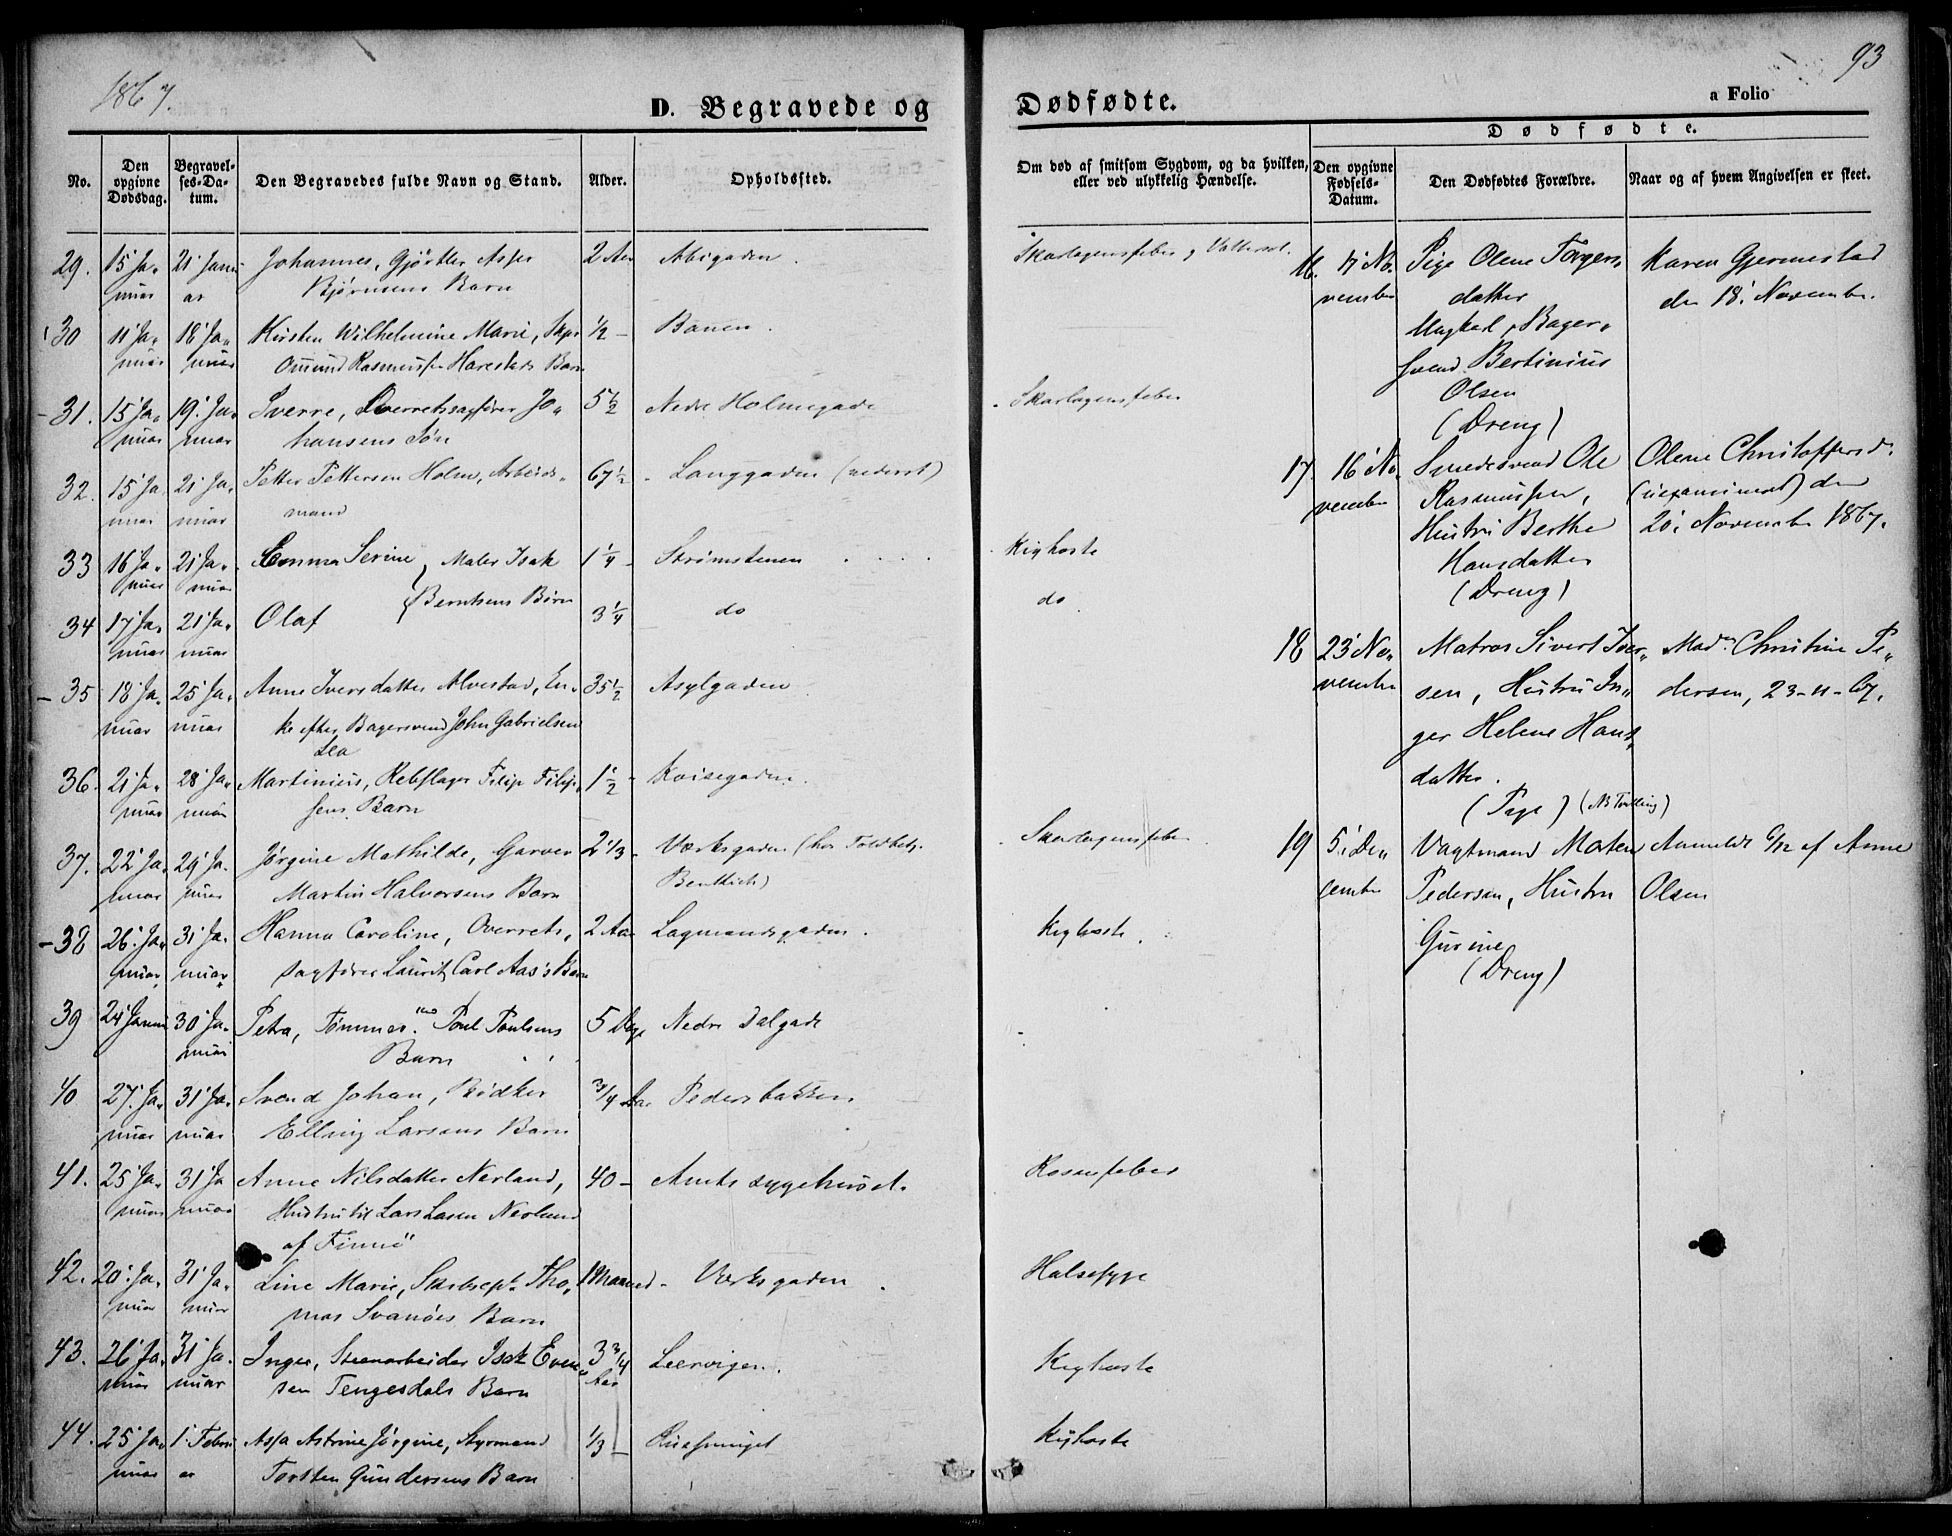 1867.
93
D. Begravede og Dødfødte.
a Folio
Dødfødte.
No.
Den opgivne Dødsdag.
Begravelses-Datum.
Den Begravedes fulde Navn og Stand.
Alder.
Opholdssted.
Om død af smitsom Sygdom, og da hvilken, eller ved ulykkelig Hændelse.
Den opgivne Fødsels-Datum.
Den Dødfødtes Forældre.
Naar og af hvem Angivelsen er skeet.
29. 15' Januar 21' Januar Johannes, Gjørtler
Bjørnsens Barn 2 Aar Skarlagensfeber
30 11' Januar 18' Januar Kirsten Wilhelmine Marie, Skpr
Omund Rasmussen Harestads Barn ½ - Banen.
31. 15' Januar 19' Januar Sverre, Overretssagfører Jo„
hansens Søn 5½ Nedre Holmegade Skarlagensfeber
32. 15' Januar 21' Januar Petter Pettersen Holm, Arbeids„
mand 67½ - Langgaden (nederst)
33 16' Januar 21' Januar Emma Serine } Maler Isak 1¼ - Strømstenen Kighoste
34 17' Januar 21' Januar Olaf { Berntsens Børn 3¼ do do
35 18' Januar 25' Januar Anne Iversdatter Alvestad, En„
ke efter Bagersvend John Gabrielsen
Lea 35½ Asylgaden
36. 21' Januar 28' Januar Martinius, Rebslager Filip Filip„
sens Barn 1½ - Koisegaden.
37. 22' Januar 29' Januar Jørgine Mathilde, Garver
Martin Halvorsens Barn 2 1/3 - Værksgaden (hos Toldbetj. Skarlagensfeber
38 26' Januar 31' Januar Hanna Caroline, Overrets„
sagfører Lauritz Carl Aas's Barn 2 Aar Lagmandsgaden. Kighoste
39 24' Januar 30' Januar Petra, Tømmer. Poul Poulsens
Barn 5 Dage Nedre Dalgade
40 27' Januar 31' Januar Svend Johan, Bødker
Elling Larsens Barn 3/4 Aar Pedersbakken
41. 25' Januar 31' Januar Anne Nilsdatter Nerland,
Hustru til Lars Nerland
af Finnø 40 - Amtssygehuset. Rosenfeber
42. 20' Januar 31' Januar Line Marie, Tho„
mas Svanøes Barn 1 Maaned - Værksgaden Halsesyge
43. 26' Januar 31' Januar Inger, Stenarbeider Isak Even„
sen Tengesdals Barn 3 3/4 Aar Leervigen. Kighoste
44. 25' Januar 1' Februar Assa Astrine Jørgine, Styrmand
Torsten Gundersens Barn 1/3 - Kighoste
16. 17' November Pige Olene Torgers„
datter
Ungkarl, Bager„
svend Bertinius
Olsen
(Dreng)
Karen Gjermestad
den 18' November.
17. 16' November Smedesvend Ole
Rasmussen,
Hustru Berthe
Hansdatter
(Dreng)
Olene Christoffersd.
(uexamineret) den
20' November 1867.
18 23' November Matros Sivert Iver„
sen, Hustru In„
ger Helene Hans„
datter.
(Pige) (NB Tvilling)
Mad. Christine Pe„
dersen, 23-11-67.
19 5' December Vagtmand Morten
Pedersen, Hustru
Gurine
(Dreng)
Anmeldt 6/12 af Anne
Olsen